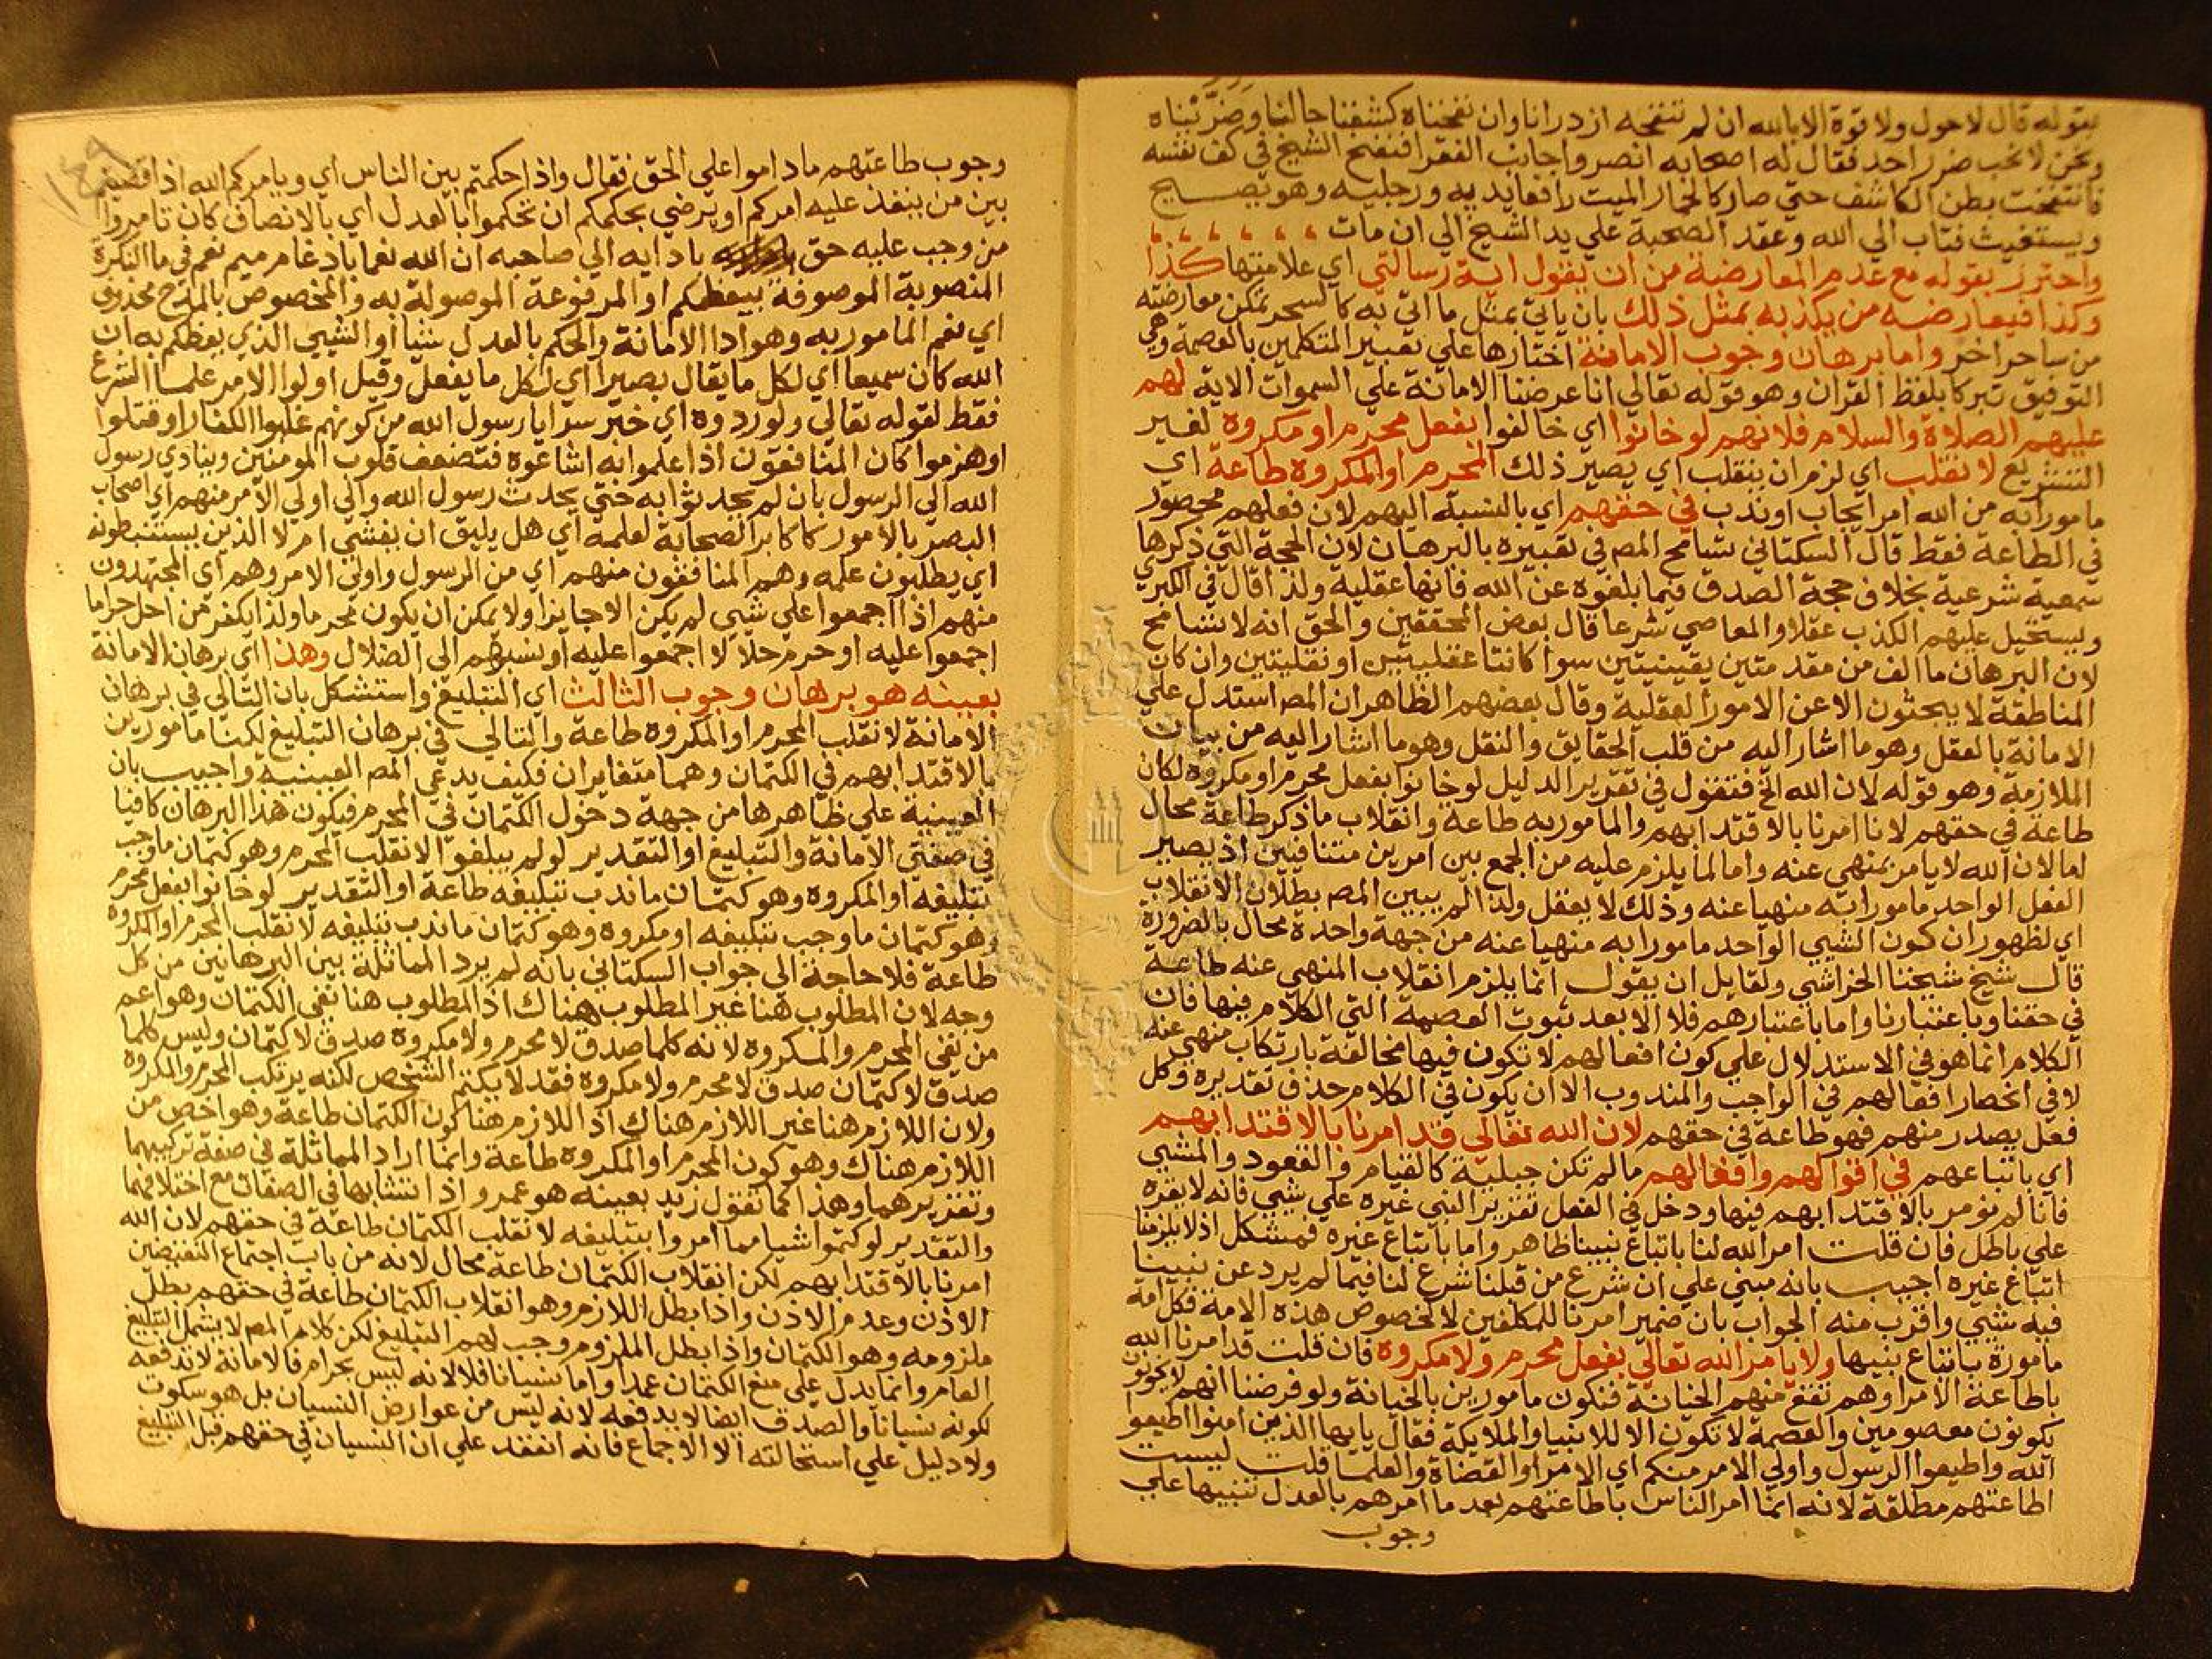 بقوله قال لاحول ولا قوة الا بالله ان لم ننفخه ازدرانا وان نفخناه كشفنا حالنا وضررناه
ونحن لا نحب ضرر احد فقال له اصحابه انصر واجانب الفقرا فنفخ الشيخ في كف نفسه
فانتفخت بطن الكاشف حتي صار كالحمار الميت رافعا يديه ورجليه وهو يصيح
ويستغيث فتاب الي الله وعقد الصحبة علي يد الشيخ الي ان مات
واحترز بقوله مع عدم المعارضة من ان يقول اية رسالتي اي علامتها كذا
وكذا فيعارضه من يكذبه بمثل ذلك بان ياتي بمثل ما اتي به كالسحر يمكن معارضته
من ساحر اخر واما برهان وجوب الامانة اختارها علي تعبير المتكلمين بالعصمة وهي
التوفيق تبركا بلفظ القران وهو قوله تعالي انا عرضنا الامانة علي السموات الاية لهم
عليهم الصلاة والسلام فلانهم لو خانوا اي خالفوا بفعل محرم او مكروه لغير
التشريع لانقلب اي لزم ان ينقلب اي يصير ذلك المحرم او المكروه طاعة اي
مامورا به من الله امر ايجاب او ندب في حقهم اي بالنسبة اليهم لان فعلهم محصور
في الطاعة فقط قال السكتاني تسامح المص في تعبيره بالبرهان لان الحجة التي ذكرها
سمعية شرعية بخلاف حجة الصدق فيما بلغوه عن الله فانها عقلية ولذا قال في الكبري
ويستحيل عليهم الكذب عقلا والمعاصي شرعا قال بعض المحققين والحق انه لا تسامح
لان البرهان ما الف من مقدمتين يقينيتين سوا كانتا عقليتين او نقليتين وان كان
المناطقة لا يبحثون الا عن الامور العقلية وقال بعضهم الظاهر ان المص استدل علي
الامانة بالعقل وهو ما اشار اليه من قلب الحقايق والنقل وهو ما اشار اليه من بيان
الملازمة وهو قوله لان الله الخ فتقول في تقرير الدليل لو خانوا بفعل محرم او مكروه لكان
طاعة في حقهم لانا امرنا بالاقتدا بهم والمامور به طاعة وانقلاب ما ذكر طاعة محال
اما لان الله لا يامر بمنهي عنه واما لما يلزم عليه من الجمع بين امرين متنافيين اذ يصير
الفعل الواحد مامورا به منهيا عنه وذلك لا يعقل ولذا لم يبين المص بطلان الانقلاب
اي لظهور ان كون الشيي الواحد مامورا به منهيا عنه من جهة واحدة محال بالضرورة
قال شيخ شيخنا الخراشي ولقايل ان يقول انما يلزم انقلاب المنهي عنه طاعة
في حقنا وباعتبارنا واما باعتبارهم فلا الا بعد ثبوت العصمة التي الكلام فيها فان
الكلام انما هو في الاستدلال علي كون افعالهم لا تكون فيها مخالفة بارتكاب منهي عنه
لا في انحصار افعالهم في الواجب والمندوب الا ان يكون في الكلام حذف تقديره وكل
فعل يصدر منهم فهو طاعة في حقهم لان الله تعالي قد امرنا بالاقتدا بهم
اي باتباعهم في اقوالهم وافعالهم ما لم تكن جبلية كالقيام والقعود والمشي
فانا لم نومر بالاقتدا بهم فيها ودخل في الفعل تقرير النبي غيره علي شيي فانه لا يقره
علي باطل فان قلت امر الله لنا باتباع نبينا ظاهر واما باتباع غيره فمشكل اذ لا يلزمنا
اتباع غيره اجيب بانه مبني علي ان شرع من قبلنا شرع لنا فيما لم يرد عن نبينا
فيه شيي واقرب منه الجواب بان ضمير امرنا للمكلفين لا لخصوص هذه الامة فكل امة
مامورة باتباع نبيها ولا يامر الله تعالي بفعل محرم ولا مكروه فان قلت قد امرنا الله
باطاعة الامرا وهم تقع منهم الخيانة فنكون مامورين بالخيانة ولو فرضنا انهم لا يخونون
يكونون معصومين والعصمة لا تكون الا للانبيا والملايكة فقال يايها الذين امنوا اطيعوا
الله واطيعوا الرسول واولي الامر منكم اي الامرا والقضاة والعلما قلت ليست
اطاعتهم مطلقة لانه انما امر الناس باطاعتهم بعد ما امرهم بالعدل تنبيها علي
وجوب
١٤٩
وجوب طاعتهم ماداموا علي الحق فقال واذا حكمتم بين الناس اي ويامركم الله اذا قضيتم
بين من ينفذ عليه امركم او يرضي بحكمكم ان تحكموا بالعدل اي بالانصاف كان تامروا
من وجب عليه حق بادايه الي صاحبه ان الله نعما بادغام ميم نعم في ما النكرة
المنصوبة الموصوفة بيعظكم او المرفوعة الموصولة به والمخصوص بالمدح محذوف
اي نعم المامور به وهو ادا الامانة والحكم بالعدل شيا او الشيي الذي يعظكم به ان
الله كان سميعا اي لكل ما يقال بصيرا اي لكل ما يفعل وقيل اولوا الامر علما الشرع
فقط لقوله تعالي ولو ردوه اي خبر سرايا رسول الله من كونهم غلبوا الكفار او قتلوا
او هزموا كان المنافقون اذا علموا به اشاعوه فتضعف قلوب المومنين ويتاذي رسول
الله الي الرسول بان لم يحدثوا به حتي يحدث رسول الله والي اولي الامر منهم اي اصحاب
البصر بالامور كاكابر الصحابة لعلمه اي هل يليق ان يفشي ام لا الذين يستنبطونه
اي يطلبون علمه وهم المنافقون منهم اي من الرسول واولي الامر وهم اي المجتهدون
منهم اذا اجمعوا علي شيي لم يكن الا جايزا ولا يمكن ان يكون محرما ولذا يكفر من احل حراما
اجمعوا عليه او حرم حلالا اجمعوا عليه او نسبهم الي الضلال وهذا اي برهان الامانة
بعينه هو برهان وجوب الثالث اي التبليغ واستشكل بان التالي في برهان
الامانة لانقلب المحرم او المكروه طاعة والتالي في برهان التبليغ لكنا مامورين
بالاقتدا بهم في الكتمان وهما متغايران فكيف يدعي المص العينية واجيب بان
العينية علي ظاهرها من جهة دخول الكتمان في المحرم فيكون هذا البرهان كافيا
في صفتي الامانة والتبليغ او التقدير لو لم يبلغوا لانقلب المحرم وهو كتمان ما وجب
تبليغه او المكروه وهو كتمان ما ندب تبليغه طاعة او التقدير لو خانوا بفعل محرم
وهو كتمان ما وجب تبليغه او مكروه وهو كتمان ما ندب تبليغه لانقلب المحرم او المكروه
طاعة فلا حاجة الي جواب السكتاني بانه لم يرد المماثلة بين البرهانين من كل
وجه لان المطلوب هنا غير المطلوب هناك اذ المطلوب هنا نفي الكتمان وهو اعم
من نفي المحرم والمكروه لانه كلما صدق لا محرم ولا مكروه صدق لا كتمان وليس كلما
صدق لا كتمان صدق لا محرم ولا مكروه فقد لا يكتم الشخص لكنه يرتكب المحرم والمكروه
ولان اللازم هنا غير اللازم هناك اذ اللازم هنا كون الكتمان طاعة وهو اخص من
اللازم هناك وهو كون المحرم او المكروه طاعة وانما اراد المماثلة في صفة تركيبهما
وتقريرهما وهذا كما تقول زيد بعينه هو عمرو اذا تشابها في الصفات مع اختلافهما
والتقدير لو كتموا شيا مما امروا بتبليغه لانقلب الكتمان طاعة في حقهم لان الله
امرنا بالاقتدا بهم لكن انقلاب الكتمان طاعة محال لانه من باب اجتماع النقيضين
الاذن وعدم الاذن واذا بطل اللازم وهو انقلاب الكتمان طاعة في حقهم بطل
ملزومه وهو الكتمان واذا بطل الملزوم وجب لهم التبليغ لكن كلام المص لا يشمل التبليغ
العام وانما يدل علي منع الكتمان عمدا واما نسيانا فلا لانه ليس بحرام فالامانة لا تدفعه
لكونه نسيانا والصدق ايضا لا يدفعه لانه ليس من عوارض النسيان بل هو سكوت
ولا دليل علي استحالته الا الاجماع فانه انعقد علي ان النسيان في حقهم قبل التبليغ